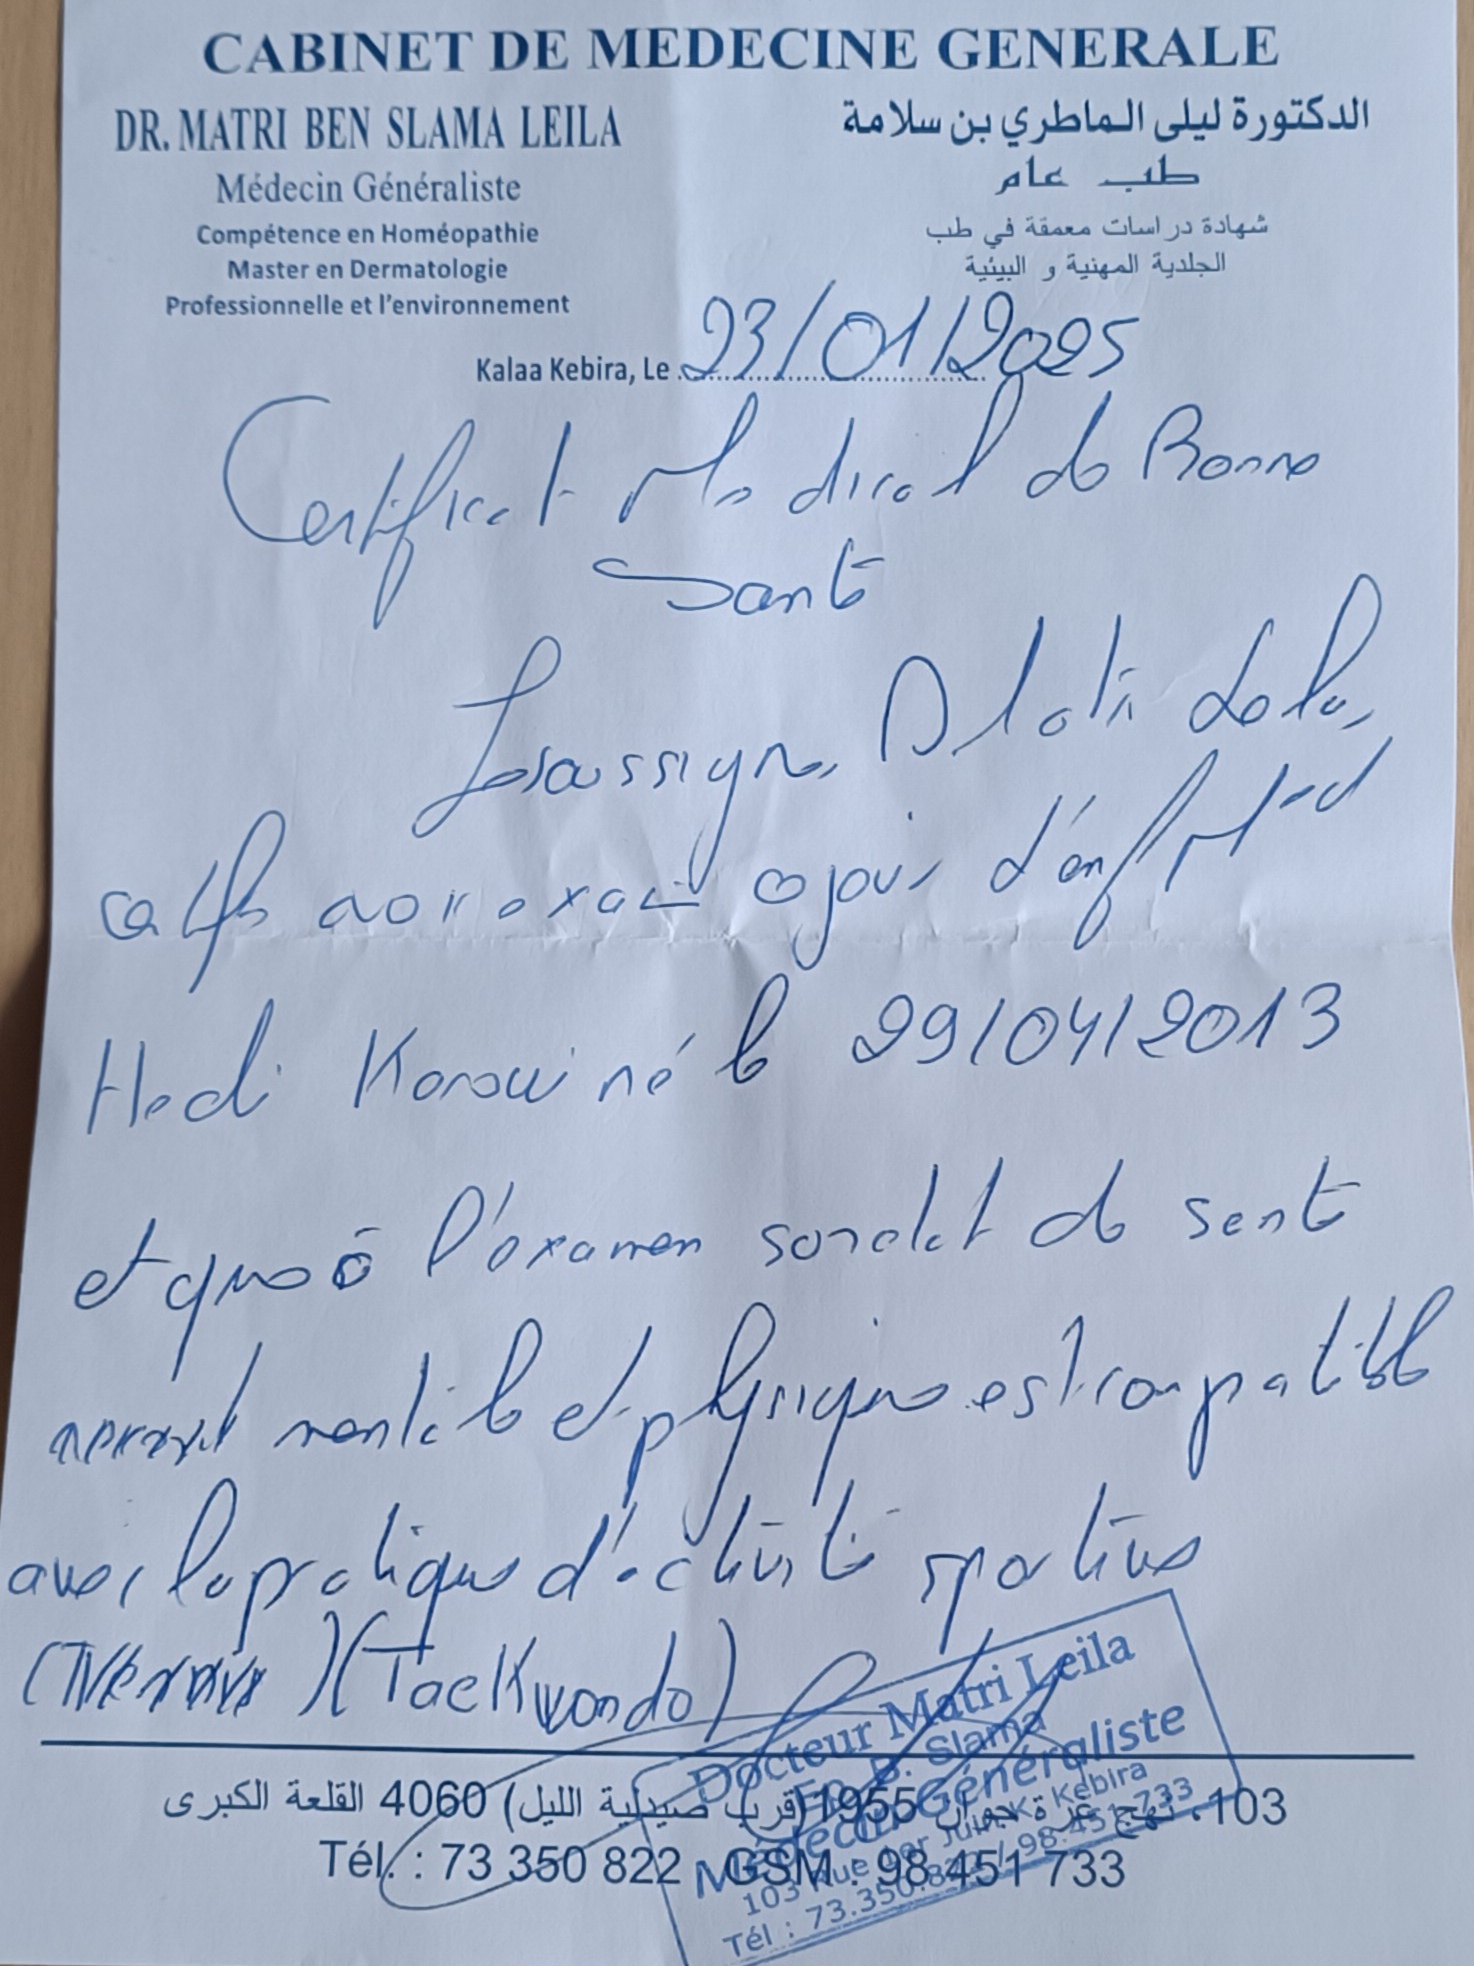 CABINET DE MEDECINE GENERALE
DR. MATRI BEN SLAMA LEILA
Médecin Généraliste
Compétence en Homéopathie
Master en Dermatologie
Professionnelle et l'environnement
الدكتورة ليلى الماطري بن سلامة
طب عام
شهادة دراسات معمقة في طب
الجلدية المهنية و البيئية
Kalaa Kebira, Le 23/01/2025
Certificat Médical de Bonne
Santé
Matri Leila,
avoir exami ce jour d'enf
Hedi né le 29/04/2013
et que à l'examen son état de santé
mentale et physique est compatible
avec la pratique d'activité sportive
(Taekwondo)
Docteur Matri Leila
Ep. B. Slama
Médecin Généraliste
103 Rue 1er Juin K. Kebira
Tél : 73.350.822 / 98.451.733
103، نهج غرة جوان 1955 (قرب صيدلية الليل) 4060 القلعة الكبرى
Tél. : 73 350 822 GSM : 98 451 733